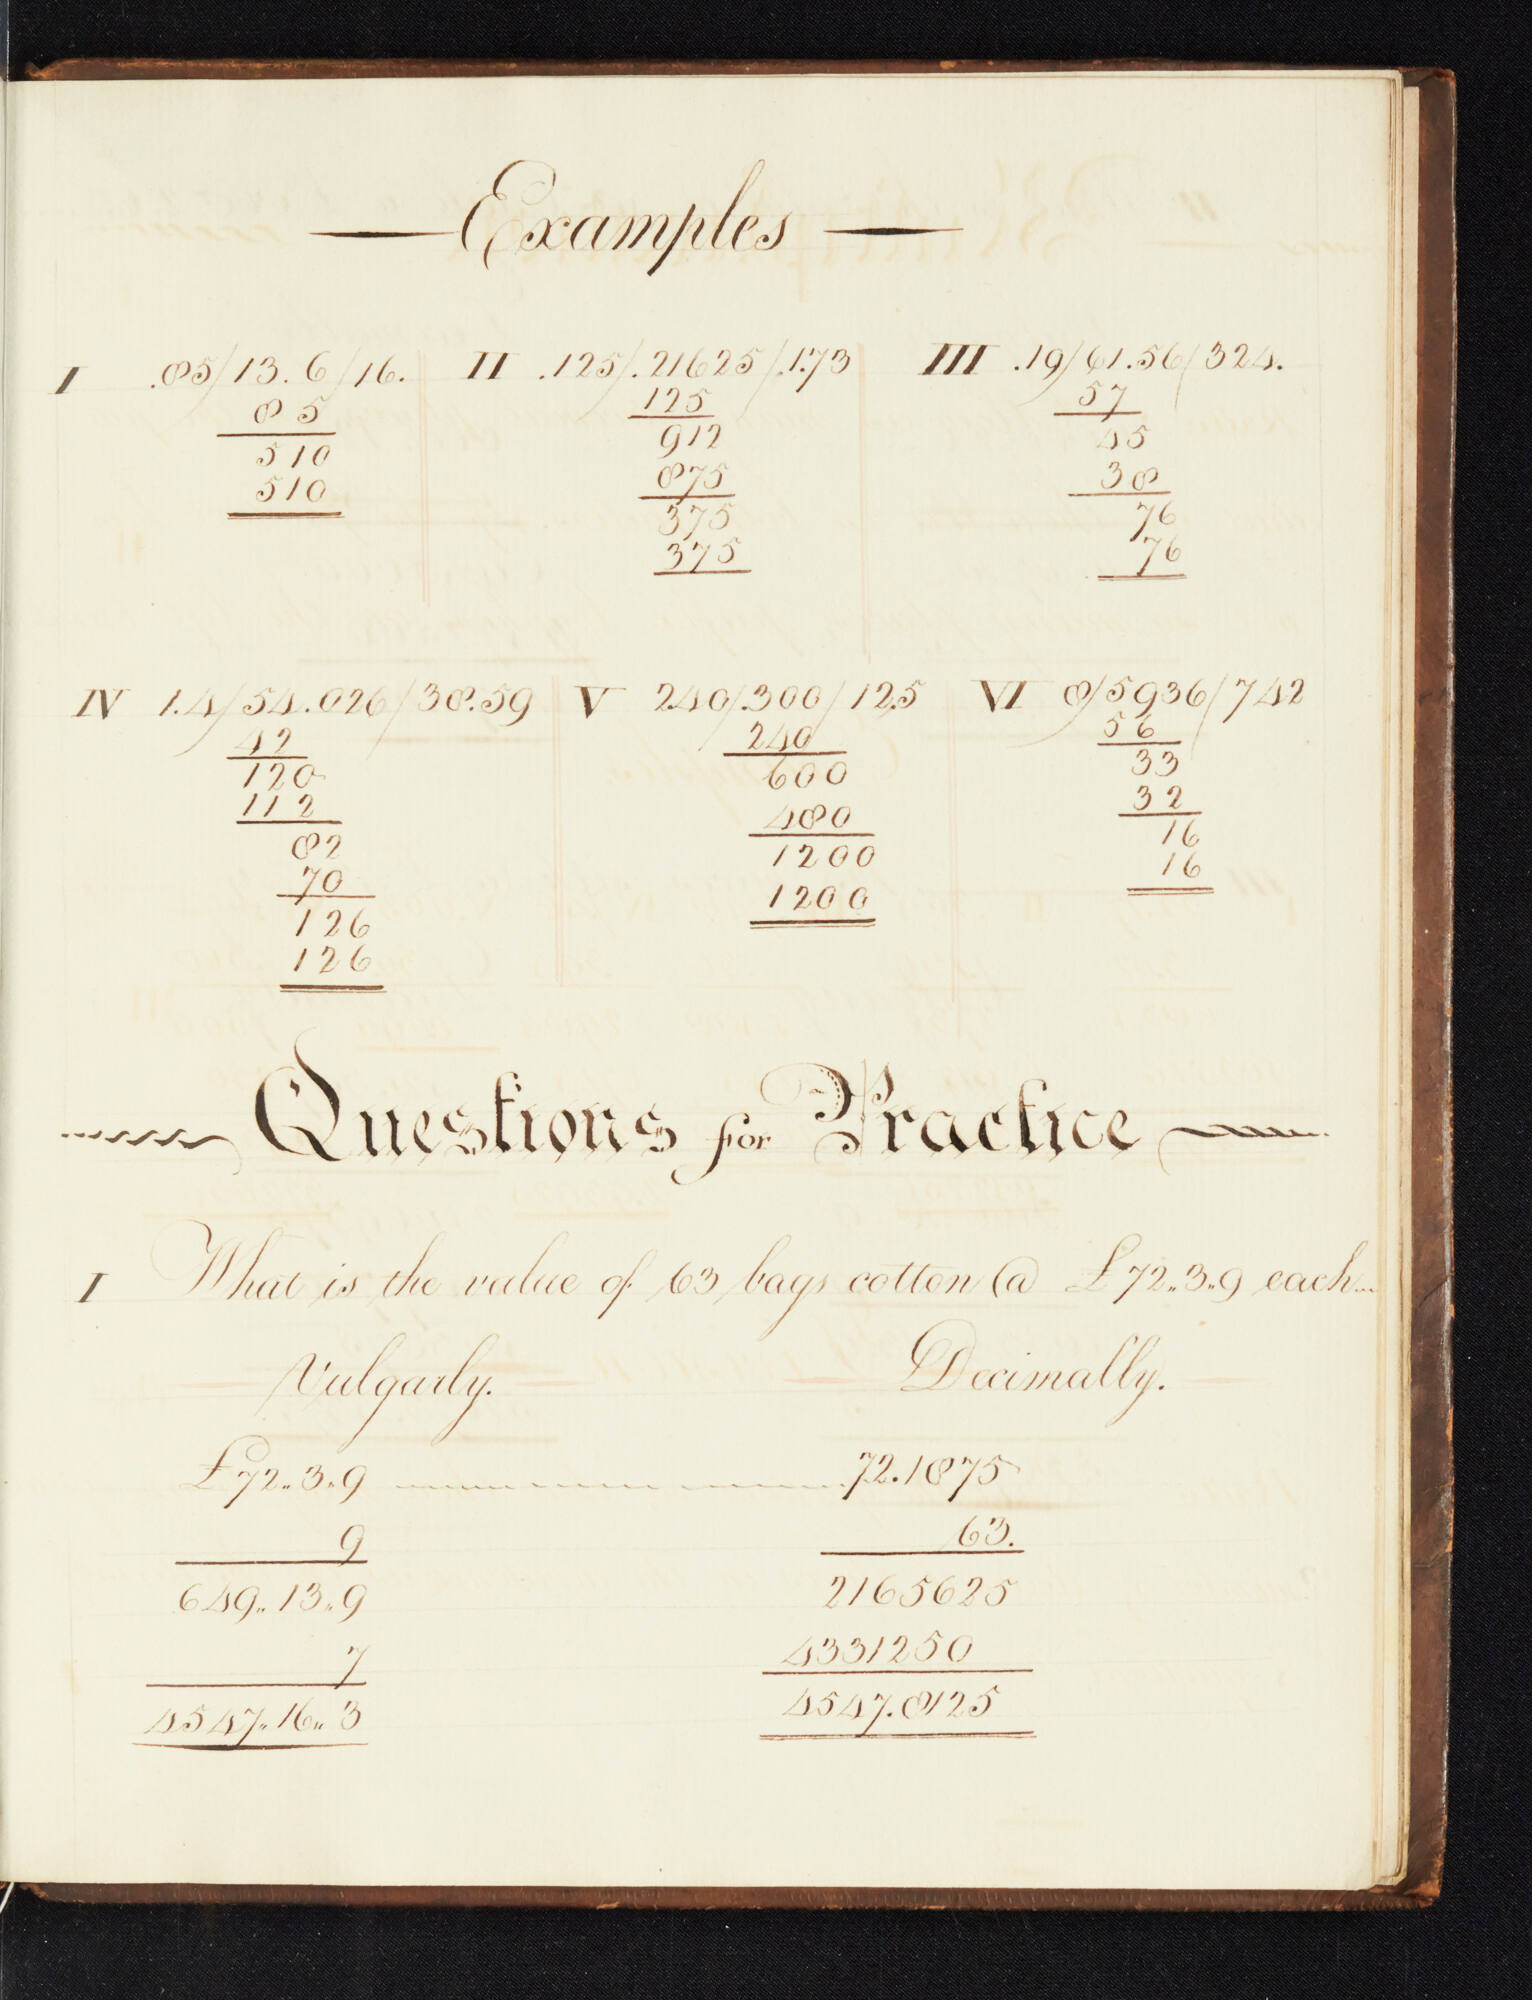 Examples
I .85/13.6/16.
85
510
510
II .125/.21625/.1.73
125
912
875
375
375
III .19/61.56/324.
57
45
38
76
76
IV 1.4/54.026/38.59
42
120
112
82
70
126
126
V 2.40/.300/12.5
240
600
480
1200
1200
VI 8/5936/742
56
33
32
16
16
Questions for Practice
I What is the value of 63 bags cotton @ £72..3..9 each...
Vulgarly. Decimally.
£72..3..9 72.1875
9 63.
649..13..9 2165625
7 4331250
4547..16..3 4547.8125